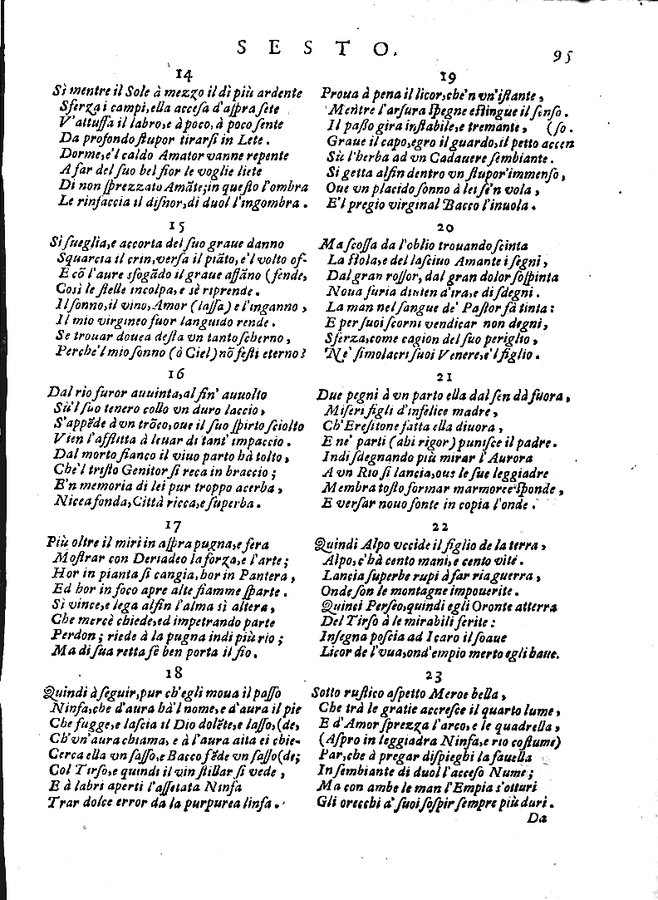 SESTO.
95
14
Sì mentre il Sole à mezzo il dì più ardente
Sferza i campi, ella accesa d'aspra sete
V'attuffa il labro, e à poco, à poco sente
Da profondo stupor tirarsi in Lete.
Dorme, e'l caldo Amator vanne repente
A far del suo bel fior le voglie liete
Di non sprezzato Amãte; in questo l'ombra
Le rinfaccia il disnor, di duol l'ingombra.
15
Si sueglia, e accorta del suo graue danno
Squarcia il crin, versa il piãto, e'l volto of-
E cõ l'aure sfogãdo il graue affãno (fende,
Così le stelle incolpa, e sè riprende.
Il sonno, il vino, Amor (lassa) e l'inganno,
Il mio virgineo fuor languido rende.
Se trouar douea desta vn tanto scherno,
Perche'l mio sonno (ò Ciel) nõ festi eterno?
16
Dal rio furor auuinta, al fin' auuolto
Sù'l suo tenero collo vn duro laccio,
S'appẽde à vn trõco, oue il suo spirto sciolto
Vien l'afflitta à leuar di tant' impaccio.
Dal morto fianco il viuo parto hà tolto,
Che'l tristo Genitor si reca in braccio;
E'n memoria di lei pur troppo acerba,
Nicea fonda, Città ricca, e superba.
17
Più oltre il miri in aspra pugna, e fera
Mostrar con Deriadeo la forza, e l'arte;
Hor in pianta si cangia, hor in Pantera,
Ed hor in foco apre alte fiamme sparte.
Si vince, e lega alfin l'alma sì altera,
Che mercè chiede, ed impetrando parte
Perdon; riede à la pugna indi più rio;
Ma di sua rettà se ben porta il fio.
18
Quindi à seguir, pur ch'egli moua il passo
Ninfa, che d'aura hà'l nome, e d'aura il pie
Che fugge, e lascia il Dio dolẽte, e lasso, (de,
Ch'vn'aura chiama, e à l'aura aita ei chie-
Cerca ella vn sasso, e Bacco fède vn sasso (de;
Col Tirso, e quindi il vin stillar si vede,
E à labri aperti l'assetata Ninfa
Trar dolce error da la purpurea linfa.
19
Proua à pena il licor, che'n vn'istante,
Mentre l'arsura spegne estingue il senso.
Il passo gira instabile, e tremante, (so.
Graue il capo, egro il guardo, il petto accen
Sù l'herba ad vn Cadauere sembiante.
Si getta alfin dentro vn stupor'immenso,
Oue vn placido sonno à lei sẽ'n vola,
E'l pregio virginal Bacco l'inuola.
20
Ma scossa da l'oblio trouando scinta
La stola, e del lasciuo Amante i segni,
Dal gran rossor, dal gran dolor sospinta
Noua furia diuien d'ira, e di sdegni.
La man nel sangue de' Pastor fà tinta:
E per suoi scorni vendicar non degni,
Sferza, come cagion del suo periglio,
Ne' simolacri suoi Venere, e'l figlio.
21
Due pegni à vn parto ella dal sen dà fuora,
Miseri figli d'infelice madre,
Ch'Eresitone fatta ella diuora,
E ne' parti (ahi rigor) punisce il padre.
Indi sdegnando più mirar l'Aurora
A vn Rio si lancia, oue le sue leggiadre
Membra tosto formar marmoree sponde,
E versar nouo fonte in copia l'onde.
22
Quindi Alpo vccide il figlio de la terra,
Alpo, c'hà cento mani, e cento vite.
Lancia superbe rupi à far ria guerra,
Onde son le montagne impouerite.
Quinci Perseo, quindi egli Oronte atterra
Del Tirso à le mirabili ferite:
Insegna poscia ad Icaro il soaue
Licor de l'vua, ond'empio merto egli haue.
23
Sotto rustico aspetto Meroe bella,
Che trà le gratie accresce il quarto lume,
E d'Amor sprezza l'arco, e le quadrella,
(Aspro in leggiadra Ninfa, e rio costume)
Par, che à pregar dispieghi la fauella
In sembiante di duol l'acceso Nume;
Ma con ambe le man l'Empia s'otturi
Gli orecchi a' suoi sospir sempre più duri.
Da